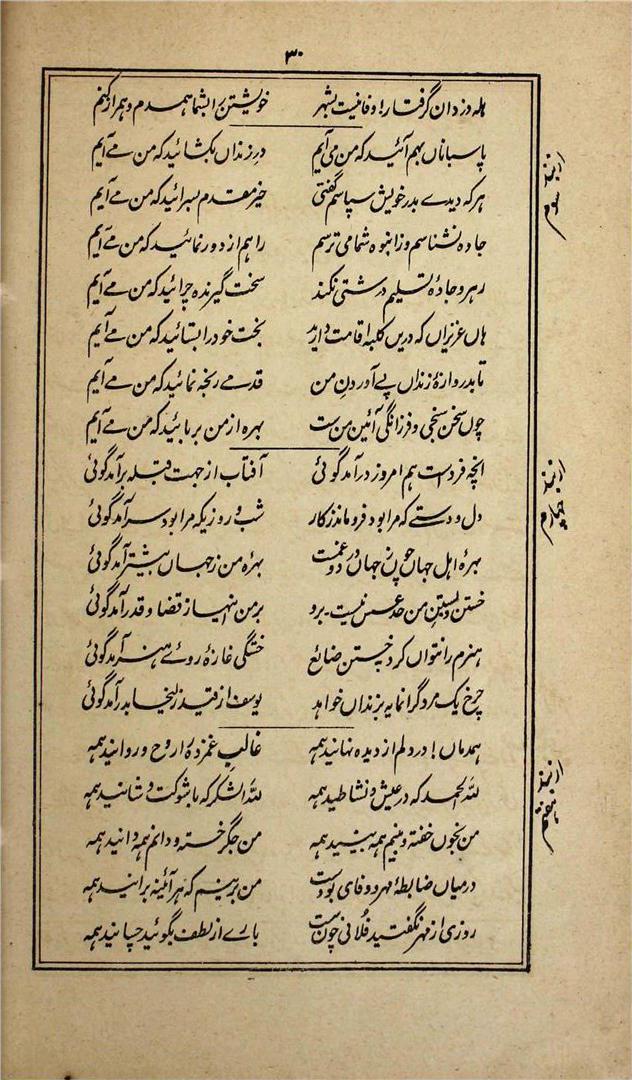 ۳۰
ہلہ دزدان گرفتار! وفا نیست بشہر خویشتن را بشما ہمدم و ہمراز کنم
از بند سوم
پاسبانان بہم آئید کہ من می آیم درِ زنداں بکشائید کہ من مے آیم
ہر کہ دیدے بدرِ خویش سپاسم گفتی خیر مقدم بسرائید کہ من مے آیم
جادہ نشناسم و ز انبوہ شما می ترسم راہم از دور نمائید کہ من مے آیم
رہرو جادۂ تسلیم درشتی نکند سخت گیرندہ چرائید کہ من مے آیم
ہاں عزیزاں کہ دریں کلبہ اقامت دارید بخت خود را بستائید کہ من مے آیم
تا بدروازۂ زنداں پے آوردنِ من قدمے رنجہ نمائید کہ من مے آیم
چوں سخن سنجی و فرزانگی آئین من ست بہرہ از من بربائید کہ من مے آیم
از بند چہارم
انچہ فرداست ہم امروز در آمد گوئی آفتاب از جہت قبلہ بر آمد گوئی
دل و دستے کہ مرا بود فروماند ز کار شب و روزیکہ مرا بود سر آمد گوئی
بہرۂ اہل جہاں چون ز جہاں درد و غمست بہرۂ من ز جہاں بیشتر آمد گوئی
خستن و بستن من حد عسس نیست۔ برو بر من اینہا ز قضا و قدر آمد گوئی
ہنرم را نتواں کرد بخستن ضائع خستگی غازۂ روے ہنر آمد گوئی
چرخ یک مرد گرانمایہ بزنداں خواہد یوسف از قید زلیخا بدر آمد گوئی
از بند ہفتم
ہمدماں! در دلم از دیدہ نہانید ہمہ غالبِ غمزدہ را روح و روانید ہمہ
للہ الحمد کہ در عیش و نشاطید ہمہ للہ الشکر کہ با شوکت و شانید ہمہ
من بخوں خفتہ و بینم ہمہ بینید ہمہ من جگر خستہ و دانم ہمہ دانید ہمہ
درمیاں ضابطۂ مہر و وفای بودست من برینم کہ ہر آئینہ برانید ہمہ
روزی از مہر نگفتید فلانی چون ست بارے از لطف بگوئید چسانید ہمہ